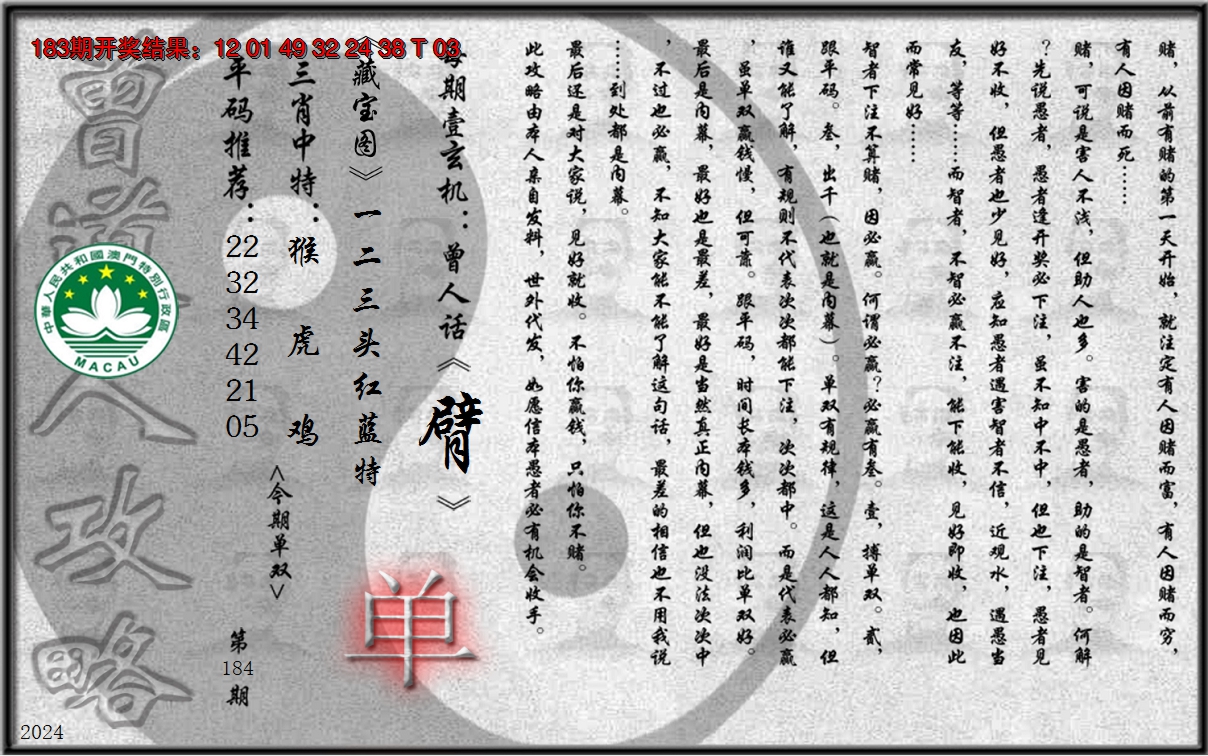 183期开奖结果：12 01 49 32 24 38 T 03
赌，从前有赌的第一天开始，就注定有人因赌而富，有人因赌而穷，
有人因赌而死……
赌，可说是害人不浅，但助人也多。害的是愚者，助的是智者。何解
？先说愚者，愚者逢开奖必下注，虽不知中不中，但也下注，愚者见
好不收，但愚者也少见好，应知愚者遇害智者不信，近观水，遇愚当
友，等等……而智者，不智必赢不注，能下能收，见好即收，也因此
而常见好……
智者下注不算赌，因必赢。何谓必赢？必赢有叁。壹，搏单双。贰，
跟平码。叁，出千（也就是内幕）。单双有规律，这是人人都知，但
谁又能了解，有规则不代表次次都能下注，次次都中。而是代表必赢
，虽单双赢钱慢，但可靠。跟平码，时间长本钱多，利润比单双好。
最后是内幕，最好也是最差，最好是当然真正内幕，但也没法次次中
，不过也必赢，不知大家能不能了解这句话，最差的相信也不用我说
……到处都是内幕。
最后还是对大家说，见好就收。不怕你赢钱，只怕你不赌。
此攻略由本人亲自发料，世外代发，如愿信本愚者必有机会收手。
每期壹玄机：曾人话《臂》
《藏宝图》一二三头红蓝特
单
三肖中特：猴 虎 鸡
<今期单双>
平码推荐：22 32 34 42 21 05
第184期
曾道人攻略
中華人民共和國澳門特別行政區
MACAU
2024